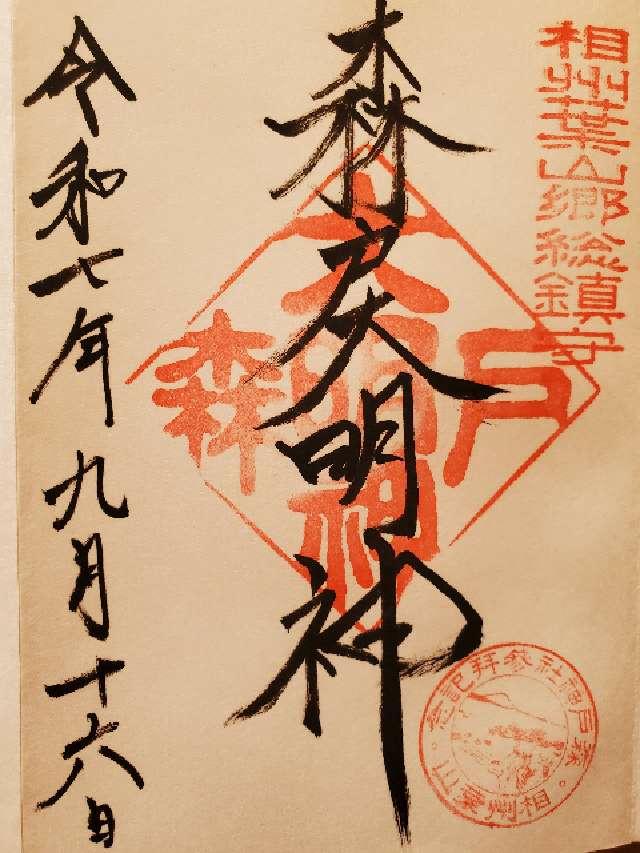 相州葉山郷総鎮守
森戸大明神
森戸大明神
令和七年九月十六日
森戸神社参拝記念
相州葉山